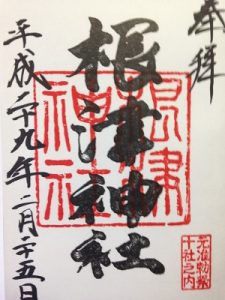 奉拝
根津神社
根津神社
元准勅祭
十社之内
平成二十九年二月二十五日